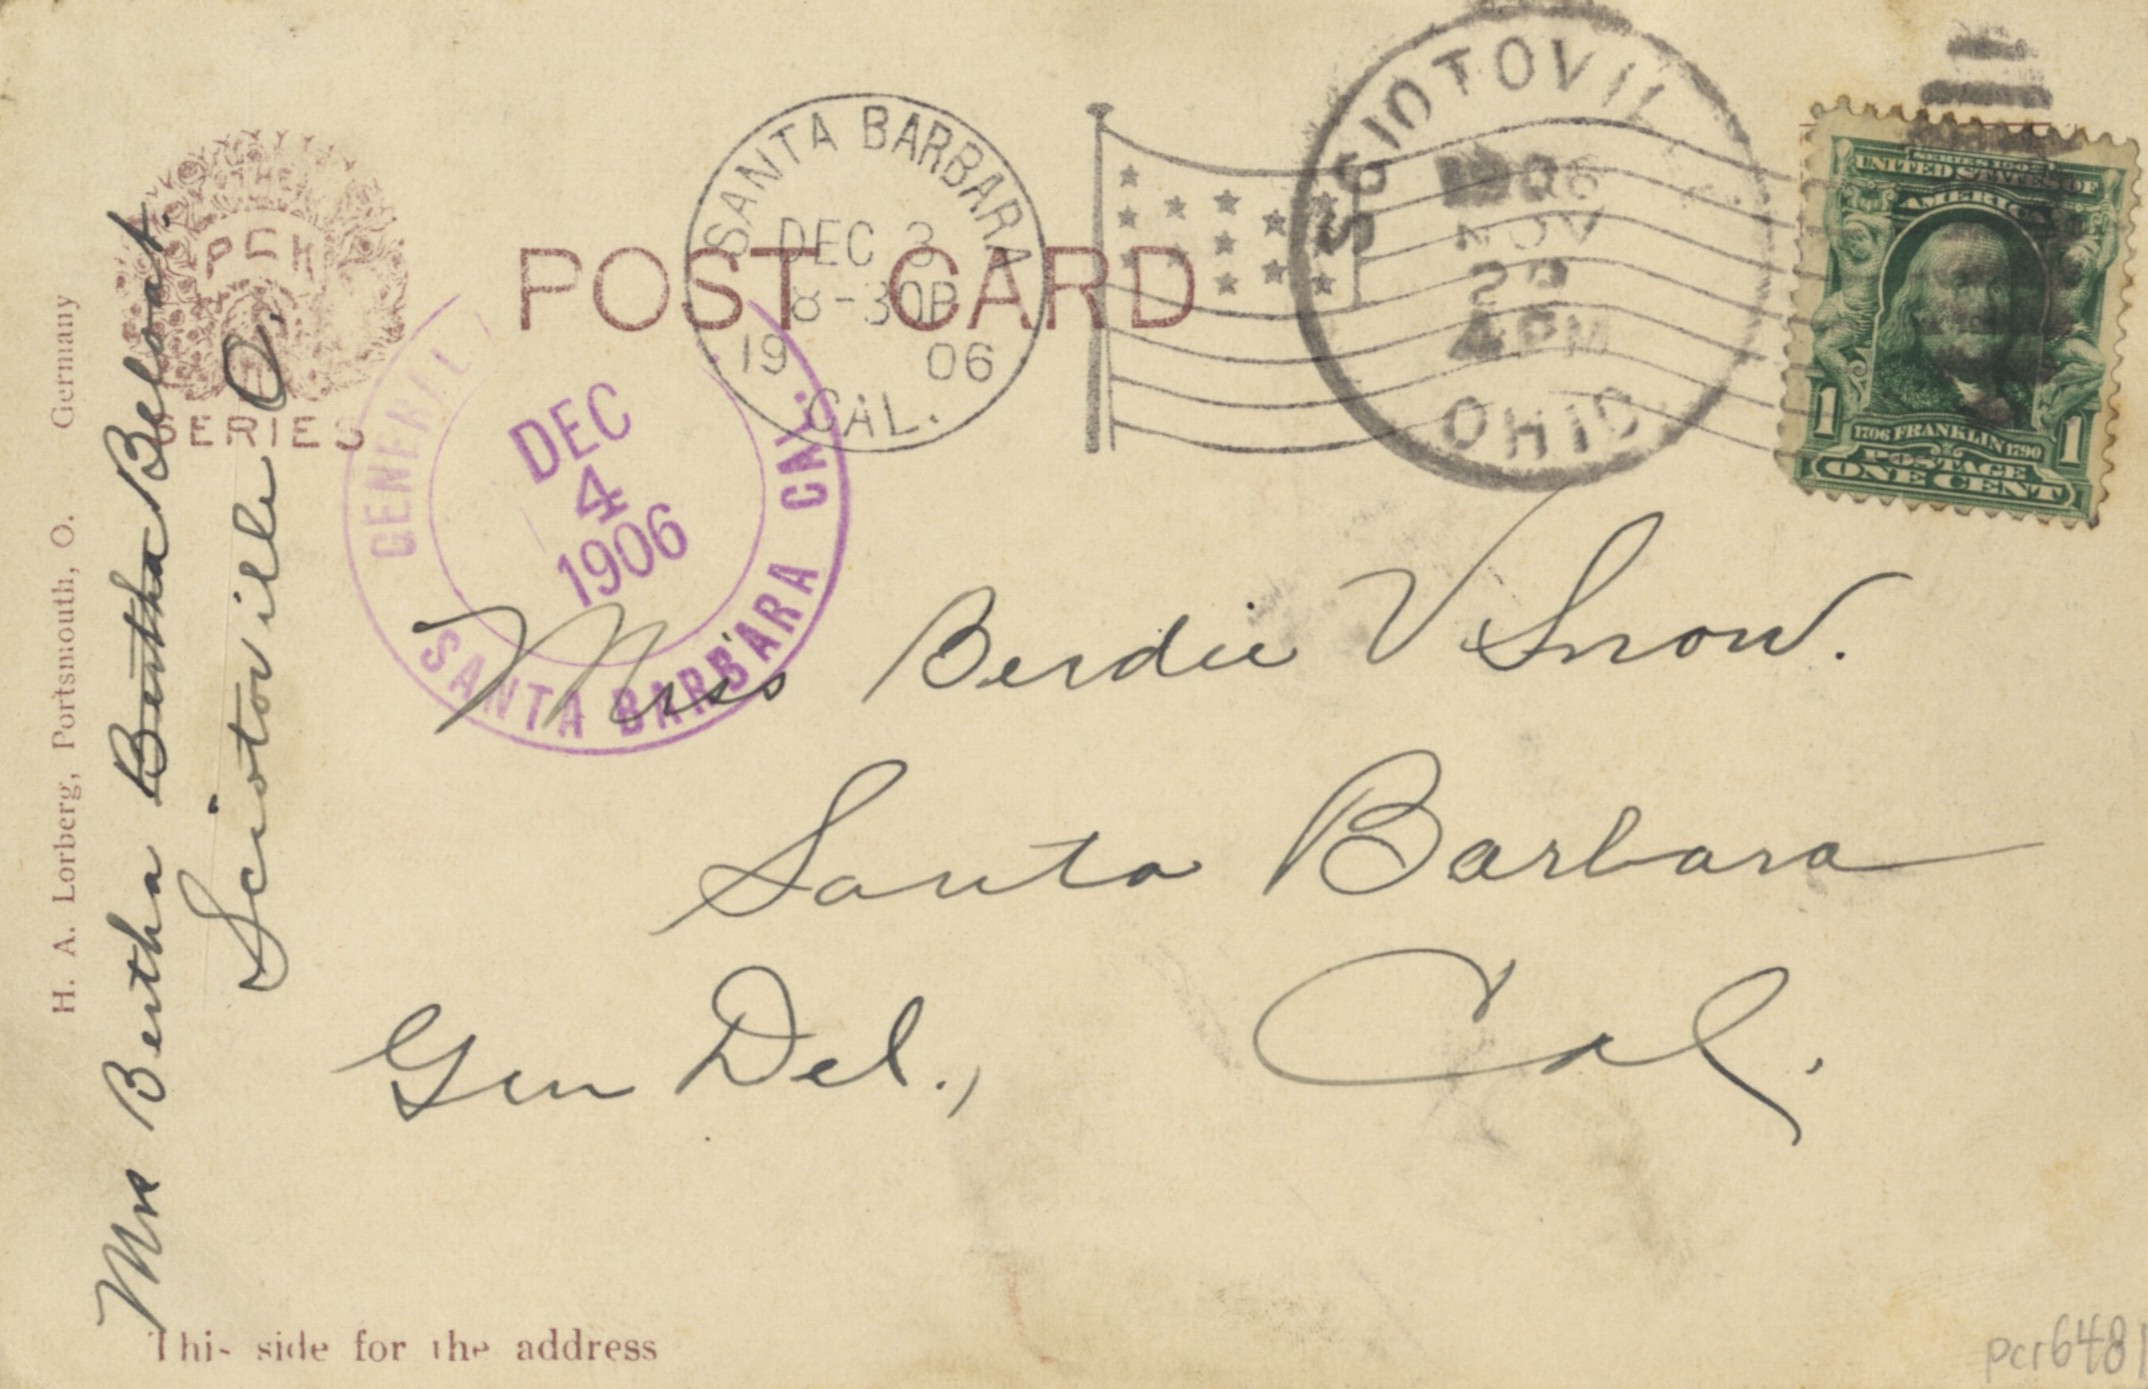 THE
PCK
SERIES
POST CARD
SANTA BARBARA
DEC 3
8-30P
19 06
CAL.
SCIOTOVIL
1906
NOV
4 PM
OHIO.
SERIES 1902
UNITED STATES OF
AMERICA
1 1
1706 FRANKLIN 1790
POSTAGE
ONE CENT
GENERAL
DEC
4
1906
SANTA BARBARA CAL.
Miss Berdie V Snow.
Santa Barbara
Gen Del., Cal.
H. A. Lorberg, Portsmouth, O. Germany
Mrs Bertha Bertha Beloat.
Sciotoville O.
This side for the address
pcr6481